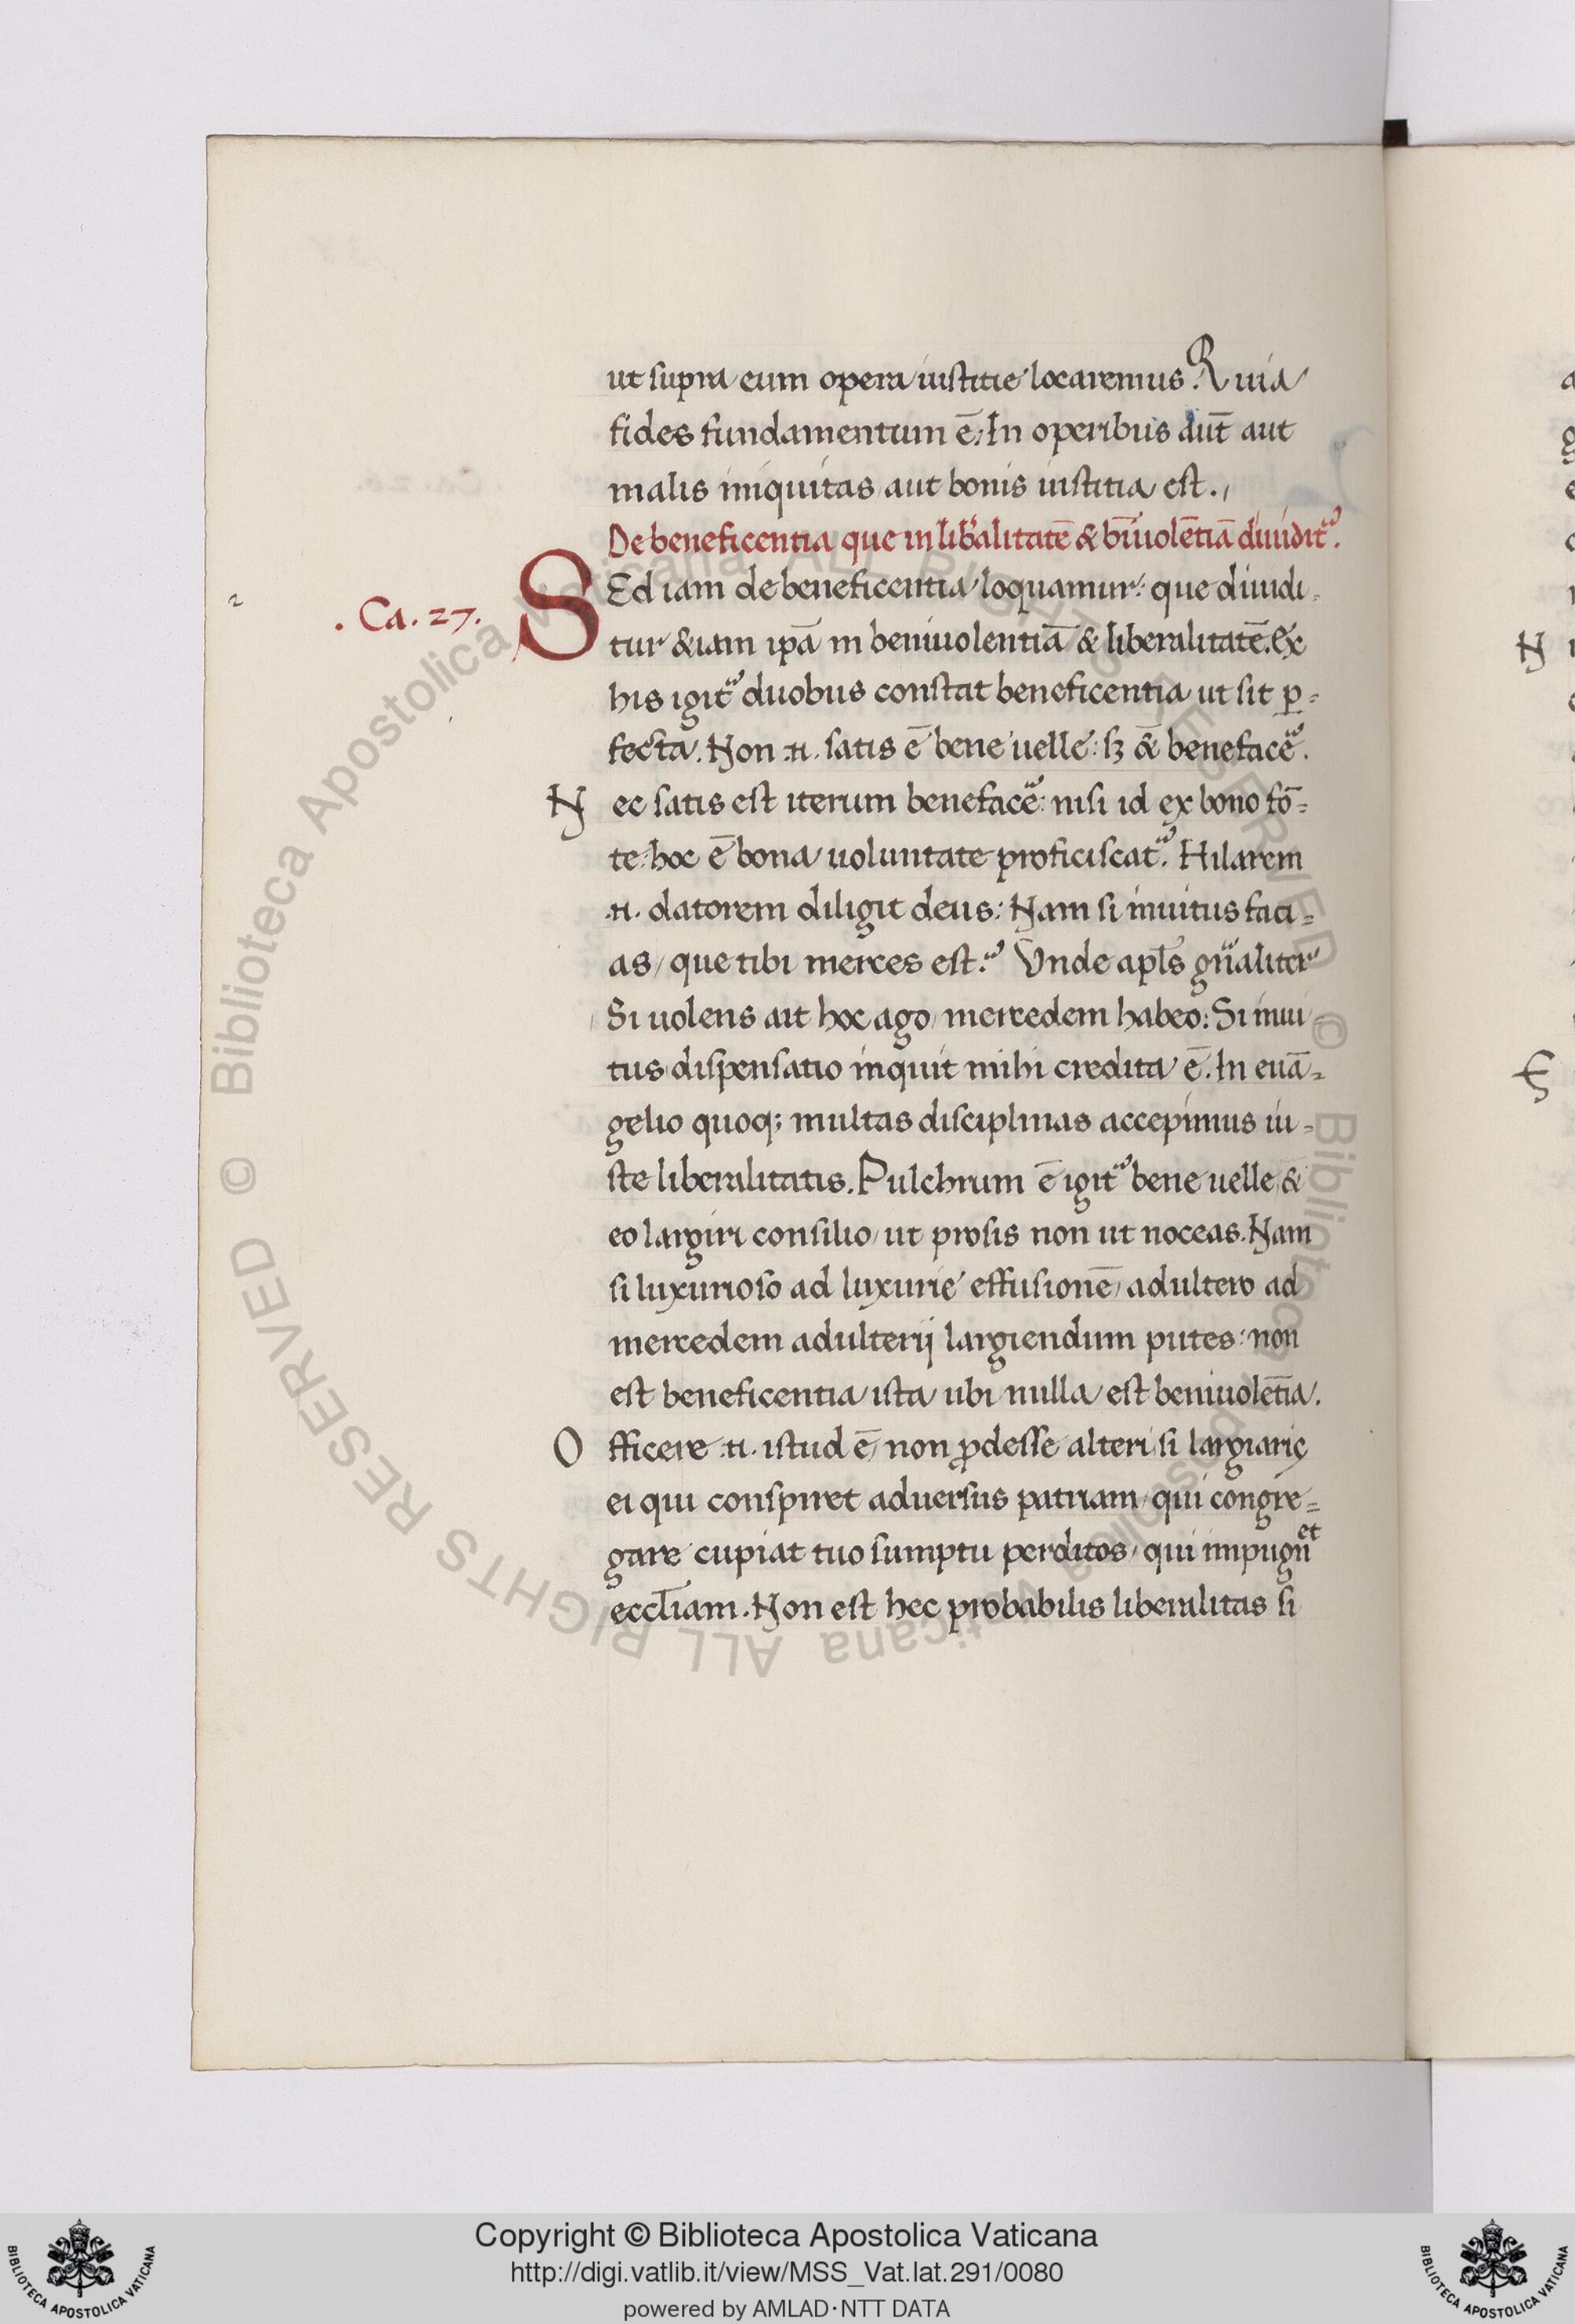 ut supra cum opera iustitie locaremus. Quia
fides fundamentum ē. In operibus aut̄ aut
malis iniquitas aut bonis iustitia est.
De beneficentia que in lib̄alitatē & bn̄iuolētiā diuidit᷑.
. Ca. 27.
SEd iam de beneficentia loquamur: que diuidi
tur &iam ip̄a in beniuolentiā & liberalitatē. Ex
his igit᷑ duobus constat beneficentia ut sit ꝑ=
fecta. Non .n. satis ē bene uelle: sꝫ & benefacē᷑.
Nec satis est iterum benefacē᷑: nisi id ex bono fō=
te hoc ē bona uoluntate proficiscat᷑. Hilarem
.n. datorem diligit deus: Nam si inuitus faci=
as/ que tibi merces est? Vnde apl̄s gn̄aliter
Si uolens ait hoc ago/ mercedem habeo: Si inui
tus dispensatio inquit mihi credita ē. In euā=
gelio quoq; multas disciplinas accepimus iu=
ste liberalitatis. Pulchrum ē igit᷑ bene uelle &
eo largiri consilio/ ut prosis non ut noceas. Nam
si luxurioso ad luxurie effusionē/ adultero ad
mercedem adulterij largiendum putes: non
est beneficentia ista ubi nulla est beniuolētia.
Officere .n. istud ē/ non ꝓdesse alteri si largiaris
ei qui conspiret aduersus patriam/ qui congre=
gare cupiat tuo sumptu perditos/ qui impugnet
eccl̄iam. Non est hec probabilis liberalitas si
Copyright © Biblioteca Apostolica Vaticana
http://digi.vatlib.it/view/MSS_Vat.lat.291/0080
powered by AMLAD·NTT DATA
BIBLIOTECA APOSTOLICA VATICANA
BIBLIOTECA APOSTOLICA VATICANA
© Biblioteca Apostolica Vaticana ALL RIGHTS RESERVED © Biblioteca Apostolica Vaticana ALL RIGHTS RESERVED